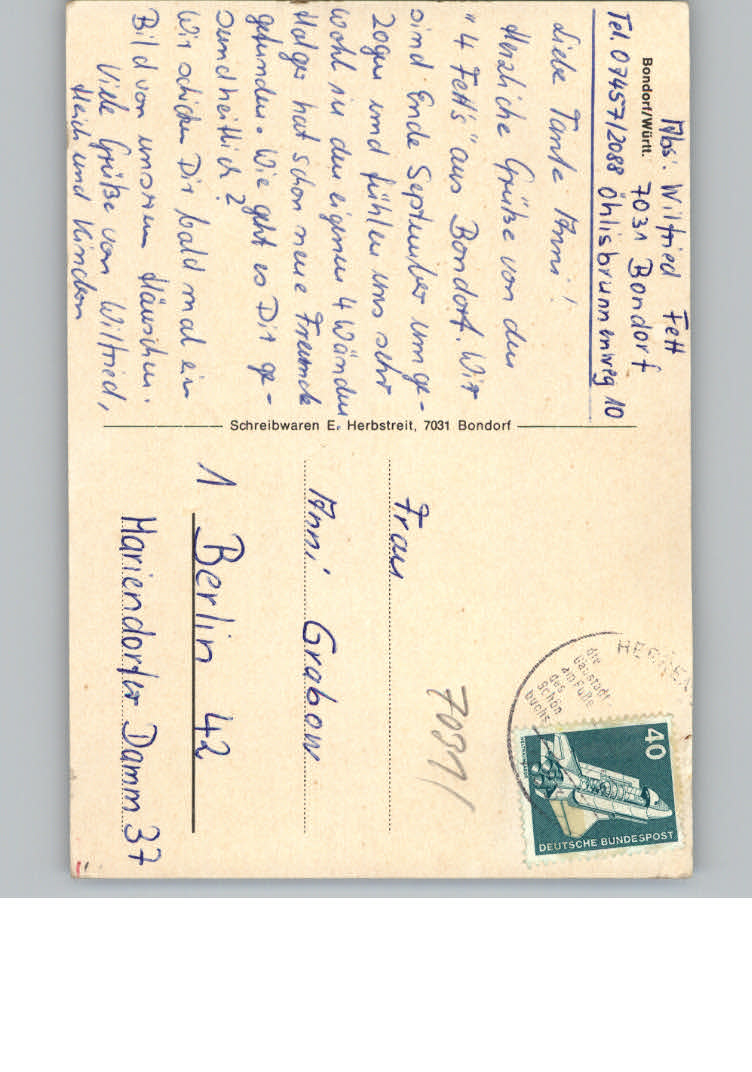 Abs. Wilfried Fett
Bondorf/Württ.
7031 Bondorf
Tel. 07457/2088 Öhlisbrunnenweg 10
Liebe Tante Anni!
Herzliche Grüße von den
"4 Fett's" aus Bondorf. Wir
sind Ende September umge-
zogen und fühlen uns sehr
wohl in den eigenen 4 Wänden
Holger hat schon neue Freunde
gefunden. Wie geht es Dir ge-
sundheitlich?
Wir schicken Dir bald mal ein
Bild von unserem Häuschen.
Viele Grüße von Wilfried,
und Kindern
Schreibwaren E. Herbstreit, 7031 Bondorf
Frau
Anni Grabow
1 Berlin 42
Mariendorfer Damm 37
7031/
die
Gaustadt
am Fuße
des
Schön
buchs
40
DEUTSCHE BUNDESPOST